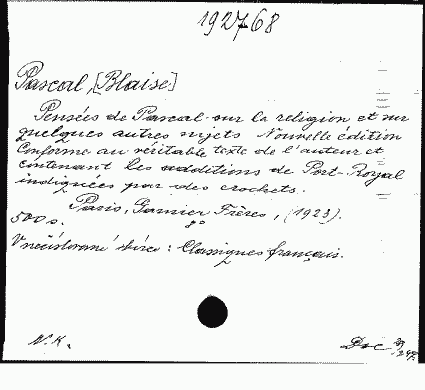 192768
Pascal, [Blaise]
Pensées de Pascal sur la religion et sur
quelques autres sujets Nouvelle édition
Conforme au véritable texte de l'auteur et
contenant les additions de Port-Royal
indiquées par des crochets.
Paris, Garnier Frères, (1923).
500 s. 8°
V nečíslované sbírce: Classiques français.
N.K.
Doc